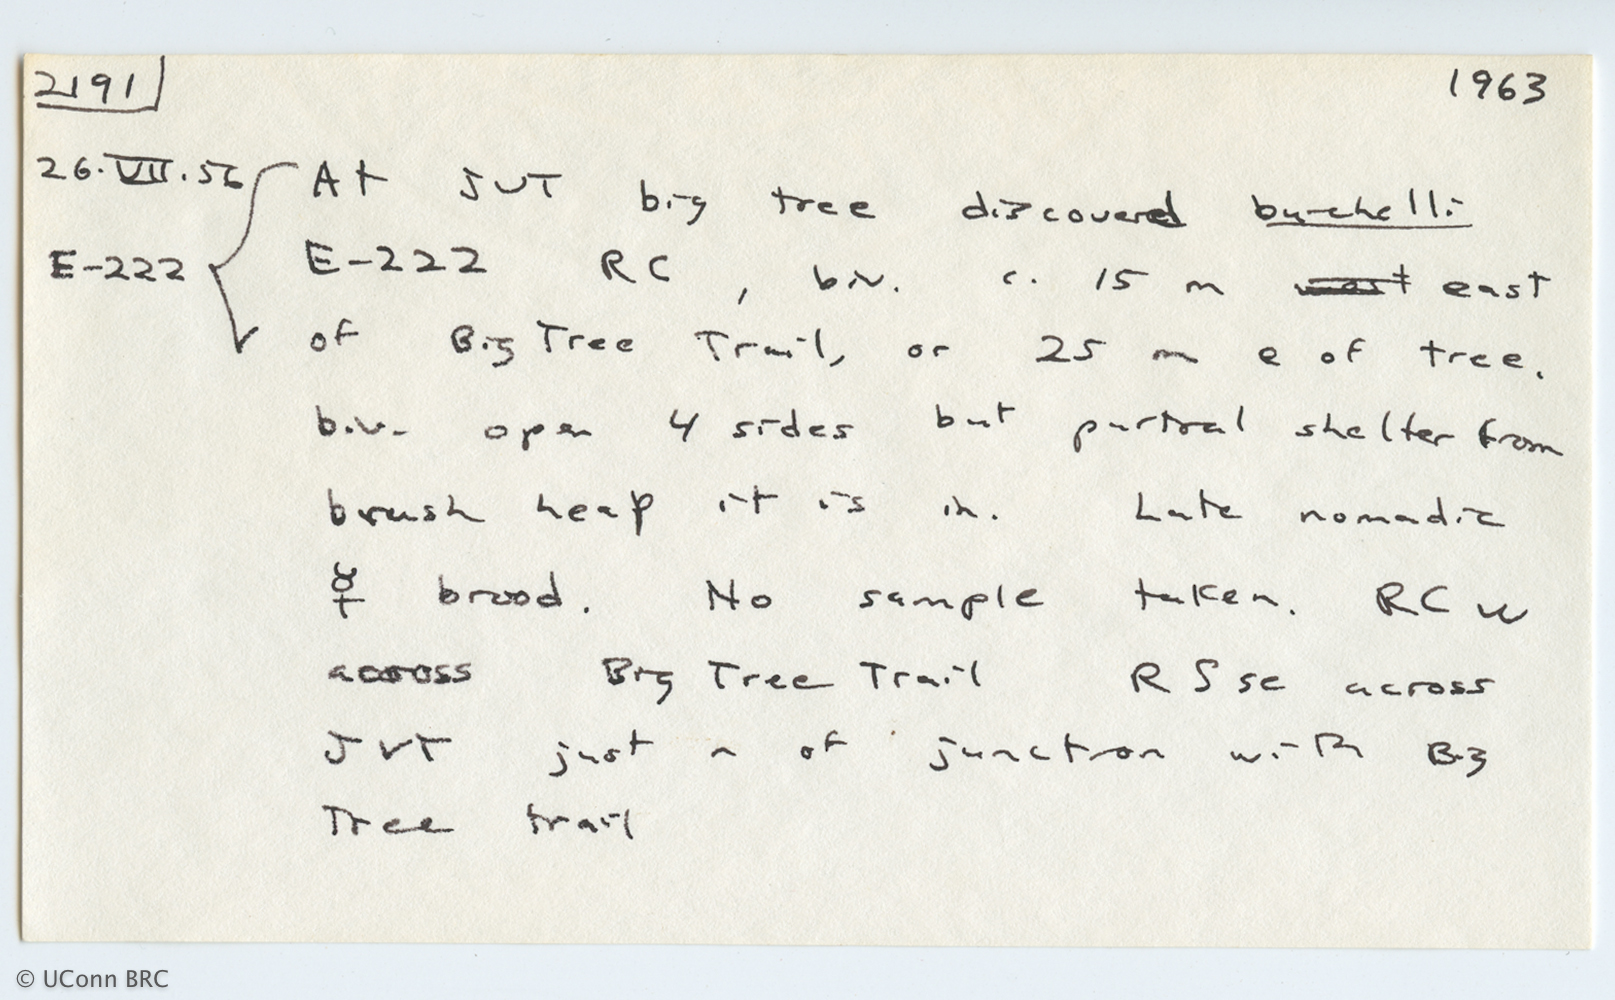 2191
1963
26.VII.56
E-222
At JVT big tree discovered burchelli
E-222 RC, biv. c. 15 m east
of Big Tree Trail, or 25 m e of tree.
biv. open 4 sides but partial shelter from
brush heap it is in. Late nomadic
☿ brood. No sample taken. RC w
across Big Tree Trail RS se across
JVT just n of junction with Big
Tree trail
© UConn BRC